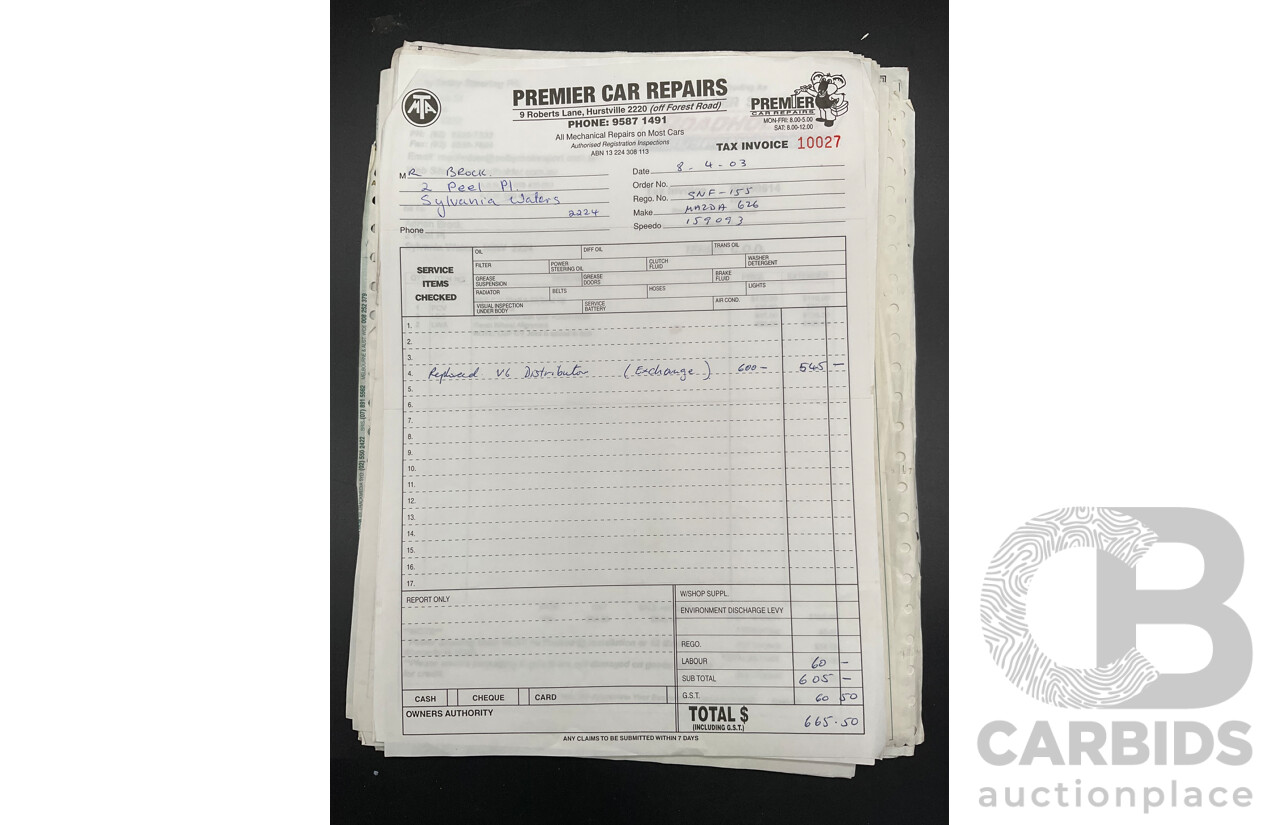 MTA
PREMIER CAR REPAIRS
9 Roberts Lane, Hurstville 2220 (off Forest Road)
PHONE: 9587 1491
All Mechanical Repairs on Most Cars
Authorised Registration Inspections
ABN 13 224 308 113
PREMIER
CAR REPAIRS
MON-FRI: 8.00-5.00
SAT: 8.00-12.00
TAX INVOICE 10027
MR BROCK.
2 Peel Pl.
Sylvania Waters
2224
Phone
Date 8.4.03
Order No.
Rego. No. SNF-155
Make MAZDA 626
Speedo 159093
SERVICE ITEMS CHECKED
OIL DIFF OIL TRANS OIL
FILTER POWER STEERING OIL CLUTCH FLUID WASHER DETERGENT
GREASE SUSPENSION GREASE DOORS BRAKE FLUID
RADIATOR BELTS HOSES LIGHTS
VISUAL INSPECTION UNDER BODY SERVICE BATTERY AIR COND.
1.
2.
3.
4. Replaced V6 Distributor (Exchange) 600- 545 -
5.
6.
7.
8.
9.
10.
11.
12.
13.
14.
15.
16.
17.
REPORT ONLY
W/SHOP SUPPL.
ENVIRONMENT DISCHARGE LEVY
REGO.
LABOUR 60 -
SUB TOTAL 605 -
G.S.T. 60 50
CASH CHEQUE CARD
OWNERS AUTHORITY
TOTAL $ 665.50
(INCLUDING G.S.T.)
ANY CLAIMS TO BE SUBMITTED WITHIN 7 DAYS
CB
CARBIDS
auctionplace